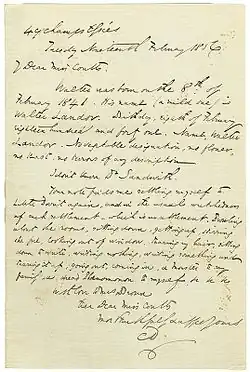 49 Champs Elysées
Tuesday Nineteenth February 1856
My Dear Miss Coutts.
Walter was born on the 8th. of
February 1841. His name (a mild one) is
Walter Landor. Birthday, eighth of February
eighteen hundred and forty one. Name, Walter
Landor. No reputable designation, no flower,
no, no terrors of any description
I don't know Dr. Sandwith.
Your note finds me settling myself to
Little Dorrit again, and in the usual wretchedness
of such settlement – which is unsettlement. Prowling
about the rooms, sitting down, getting up, stirring
the fire, looking out of window, tearing my hair, sitting
down to write, writing nothing, writing something and
tearing it up, going out, coming in, a Monster to my
family, a dread Phænomenon to myself, &c &c &c
With love to Mrs. Brown
Ever Dear Miss Coutts
Most Faithfully Yours
CD